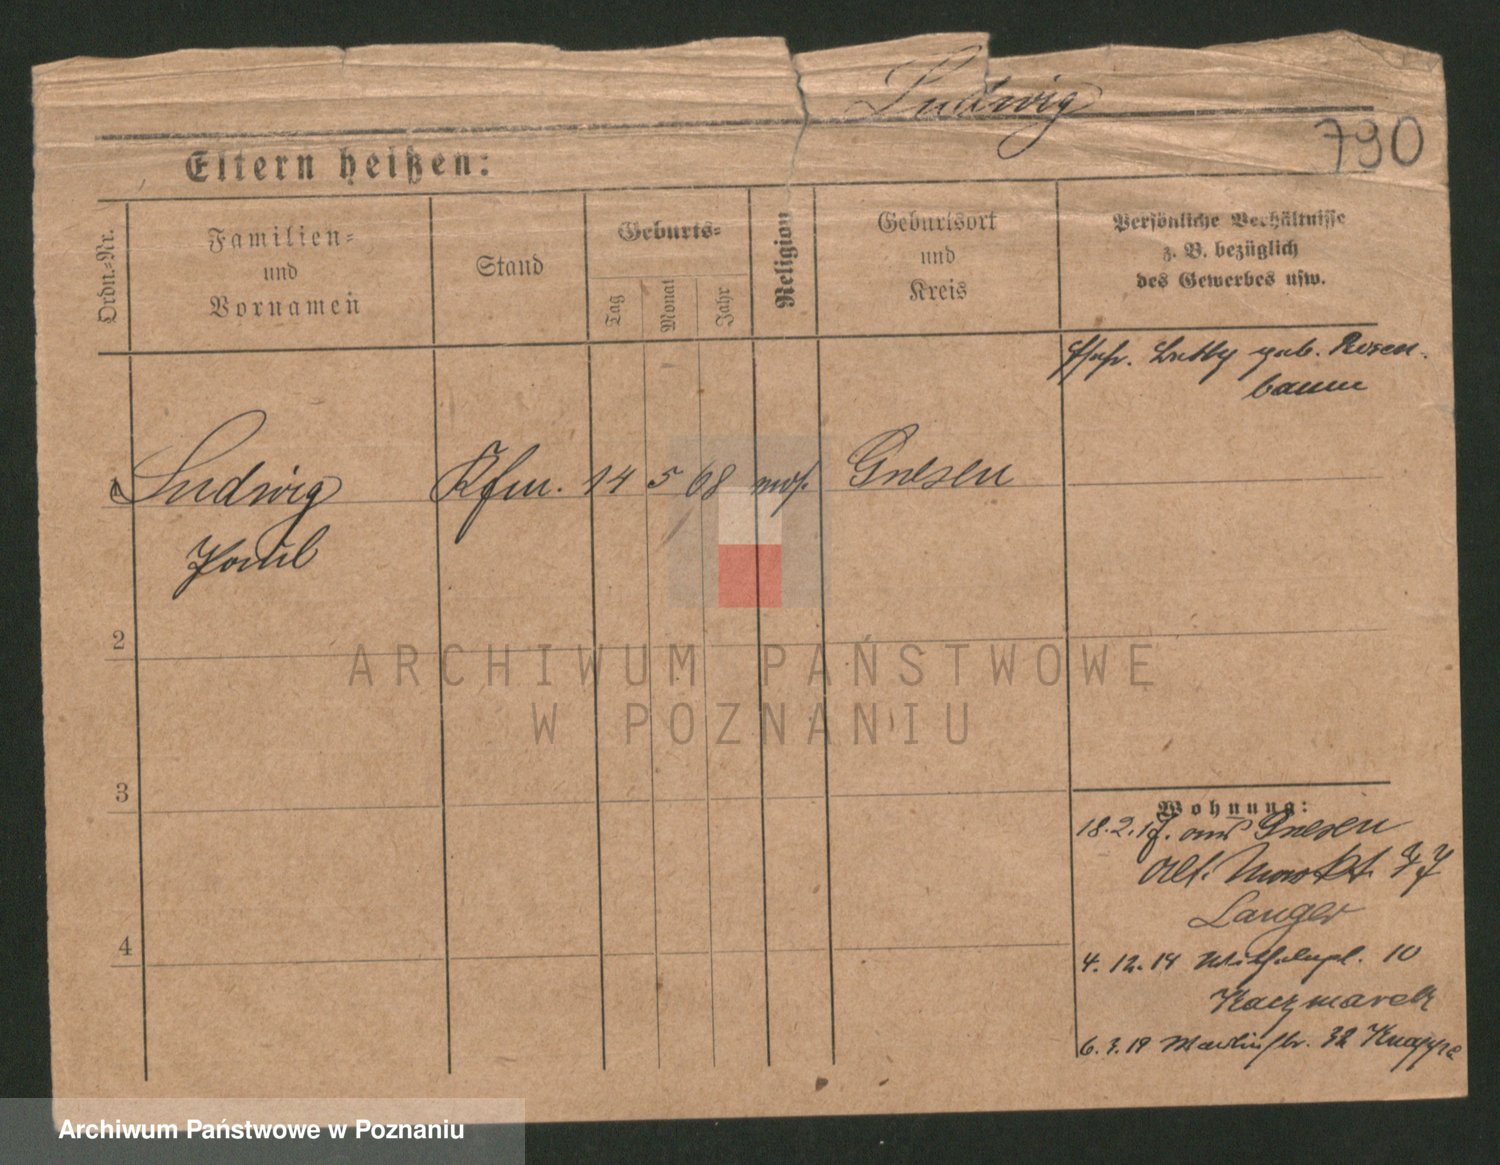 Ludwig
790
Eltern heißen:
Ordn.-Nr.
Familien-
und
Vornamen
Stand
Geburts-
Tag
Monat
Jahr
Religion
Geburtsort
und
Kreis
Persönliche Verhältnisse
z. B. bezüglich
des Gewerbes usw.
Ehefr. Betty geb. Rosen-
baum
1 Ludwig Kfm. 14 5 68 mos. Gnesen
Paul
2
3
4
Wohnung:
18.2.17. aus Gnesen
Alt. Markt
Langer
4.12.18 Wilhelmpl. 10
Kaczmarek
6.3.19 Martinstr. 32 Knappe
ARCHIWUM PAŃSTWOWE
W POZNANIU
Archiwum Państwowe w Poznaniu